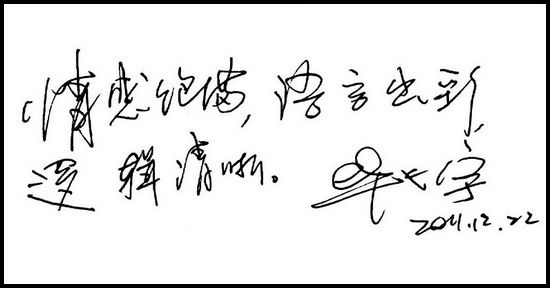 情感饱满，语言出彩，
逻辑清晰。
2011.12.22